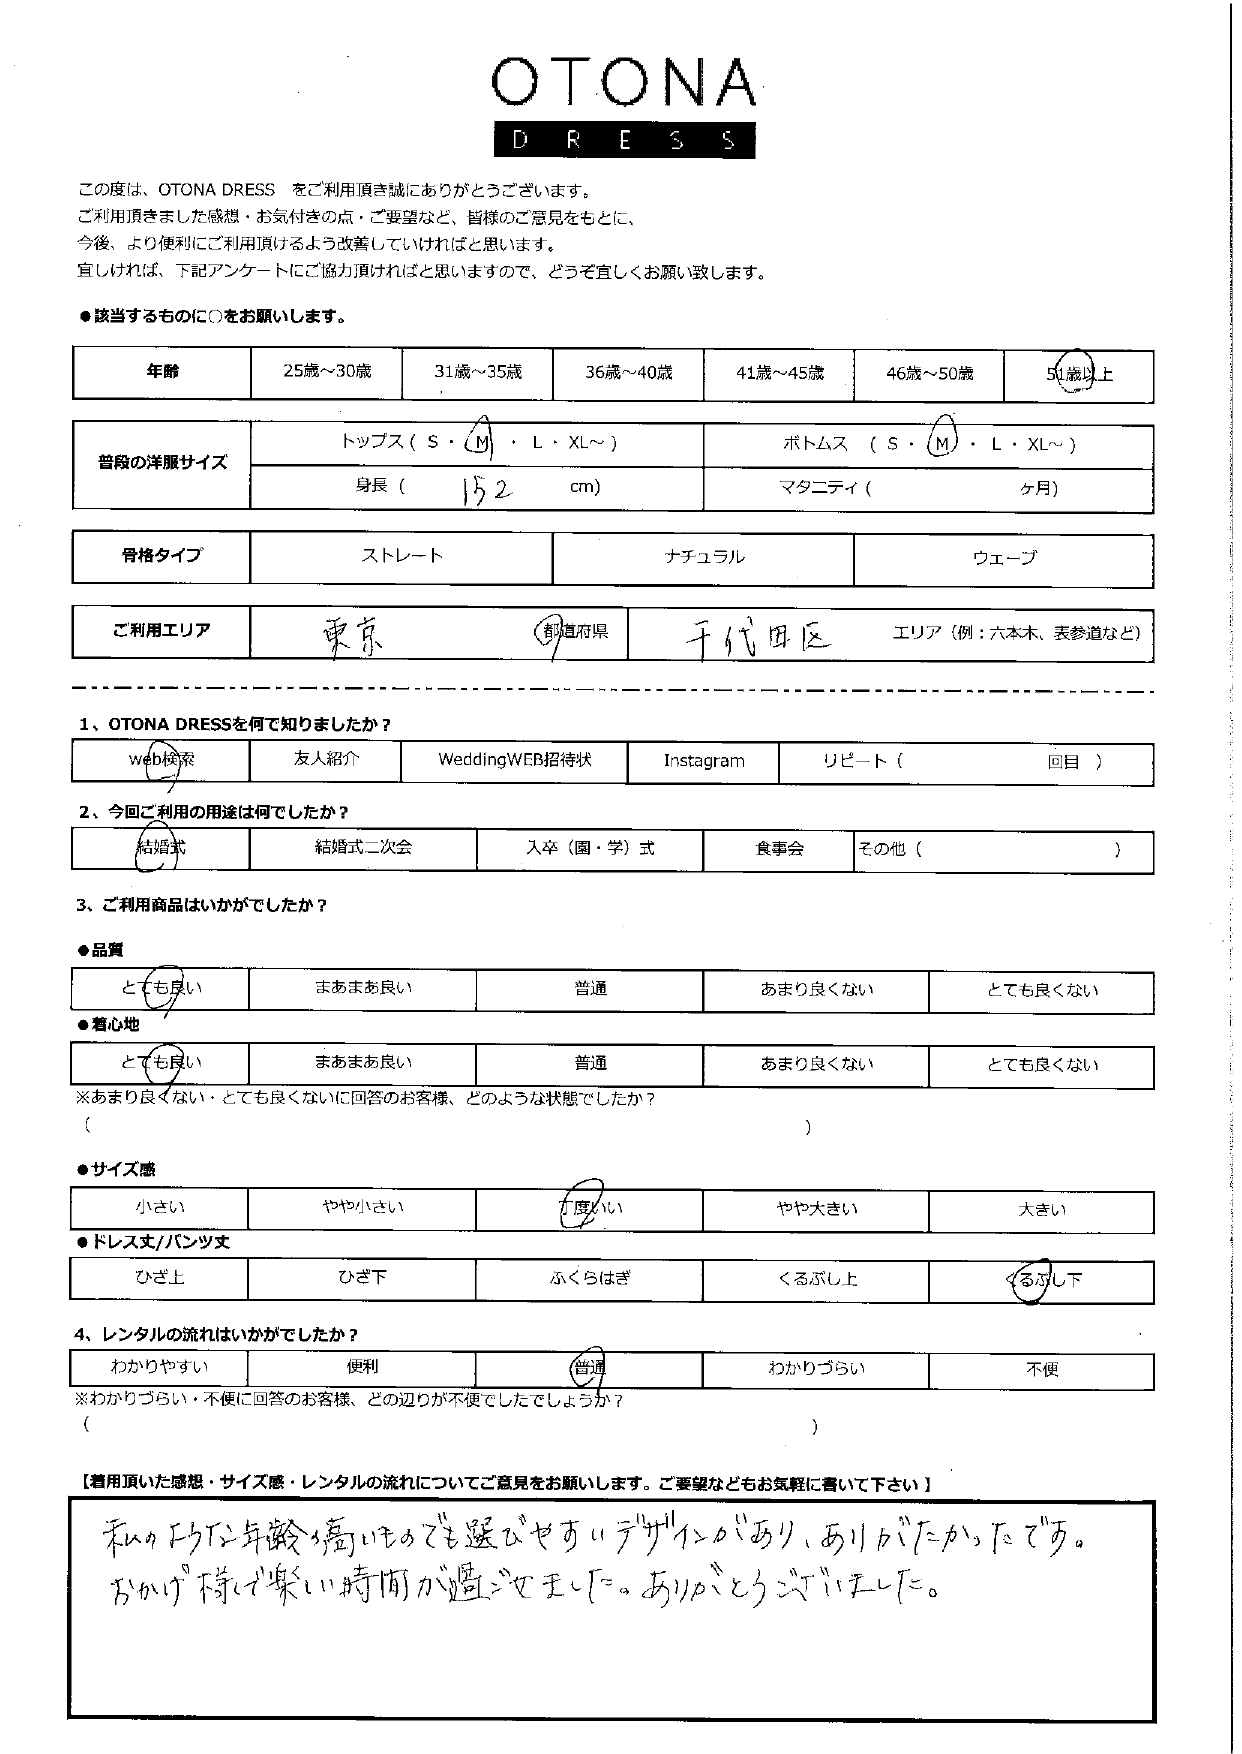 OTONA
DRESS
この度は、OTONA DRESS　をご利用頂き誠にありがとうございます。
ご利用頂きました感想・お気付きの点・ご要望など、皆様のご意見をもとに、
今後、より便利にご利用頂けるよう改善していければと思います。
宜しければ、下記アンケートにご協力頂ければと思いますので、どうぞ宜しくお願い致します。
●該当するものに○をお願いします。
年齢 25歳～30歳 31歳～35歳 36歳～40歳 41歳～45歳 46歳～50歳 51歳以上
普段の洋服サイズ トップス ( S ・ M ・ L ・ XL～ ) ボトムス ( S ・ M ・ L ・ XL～ )
身長 ( 152 cm) マタニティ ( ヶ月)
骨格タイプ ストレート ナチュラル ウェーブ
ご利用エリア 東京 都道府県 千代田区 エリア（例：六本木、表参道など）
1、OTONA DRESSを何で知りましたか？
web検索 友人紹介 WeddingWEB招待状 Instagram リピート ( 回目 )
2、今回ご利用の用途は何でしたか？
結婚式 結婚式二次会 入卒（園・学）式 食事会 その他 ( )
3、ご利用商品はいかがでしたか？
●品質
とても良い まあまあ良い 普通 あまり良くない とても良くない
●着心地
とても良い まあまあ良い 普通 あまり良くない とても良くない
※あまり良くない・とても良くないに回答のお客様、どのような状態でしたか？
( )
●サイズ感
小さい やや小さい 丁度いい やや大きい 大きい
●ドレス丈/パンツ丈
ひざ上 ひざ下 ふくらはぎ くるぶし上 くるぶし下
4、レンタルの流れはいかがでしたか？
わかりやすい 便利 普通 わかりづらい 不便
※わかりづらい・不便に回答のお客様、どの辺りが不便でしたでしょうか？
( )
【着用頂いた感想・サイズ感・レンタルの流れについてご意見をお願いします。ご要望などもお気軽に書いて下さい 】
私のような年齢の高いものでも選びやすいデザインがあり、ありがたかったです。
おかげ様で楽しい時間が過ごせました。ありがとうございました。